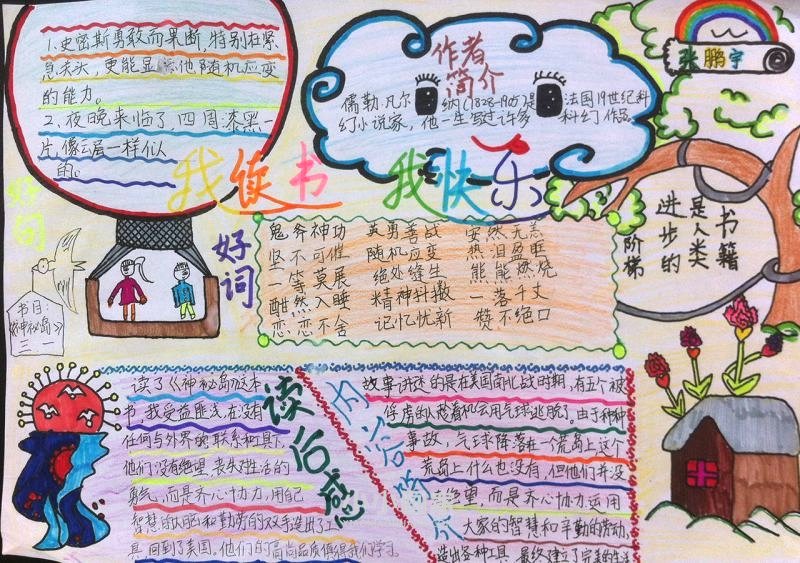 1、史密斯勇敢而果断,特别在紧
急关头,更能显 他随机应变
的能力。
2、夜晚来临了,四周漆黑一
片,像云眉一样似
的。
好句
作者
简介
儒勒·凡尔 纳(1828-1905)是 法国19世纪科
幻小说家,他一生写过许多 科幻作品
张鹏宇
我读书 我快乐
书籍
是人类
进步的
阶梯
好词
鬼斧神功 英勇善战 安然无恙
坚不可催 随机应变 热泪盈眶
一等莫展 绝处缝生 熊能燃烧
酣然入睡 精神抖擞 一落千丈
恋恋不舍 记忆忧新 赞不绝口
书目:
《神秘岛》
三一
读后感
读了《神秘岛》这本
书,我受益匪浅,在没有
任何与外界的联系和具下,
他们没有绝望、丧失对生活的
勇气,而是齐心协力,用自己
智慧的大脑和勤劳的双手造出了工
具,回到了美国。他们的高尚品质值得我们学习。
内容
故事讲述的是在美国南北战时期,有五个被
俘虏的人趁着机会用气球逃脱了。由于种种
事故,气球降落在一个荒岛上这个
荒岛上什么也没有,但他们并没
绝望,而是齐心协力运用
大家的智慧和辛勤的劳动,
造出各种工具,最终建立了完美的生活